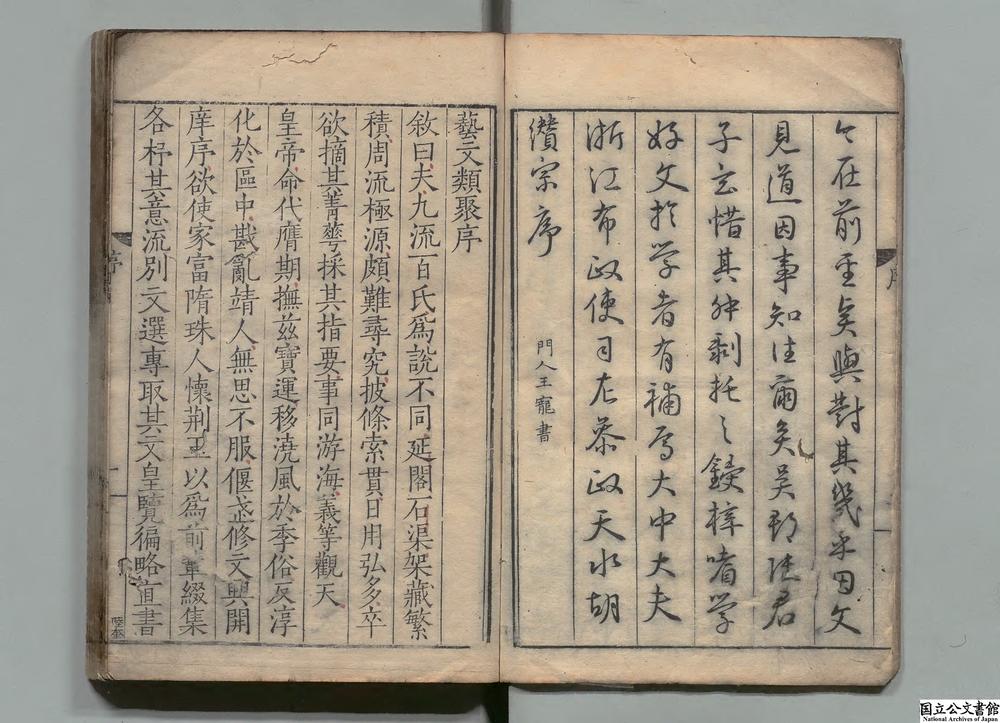 在前矣與對其幾乎因文
見道因事知往爾矣吳郡陸君
子玄惜其舛剽托之鋟梓嗜学
好文於学者有補焉大中大夫
浙江布政使司左參政天水胡
纘宗序
門人王寵書
序
一
藝文類聚序
敘曰夫九流百氏爲說不同延閣石渠架藏繁
積周流極源頗難尋究披條索貫日用弘多卒
欲摘其菁蕚採其指要事同游海義等觀天
皇帝命代膺期撫茲寶運移澆風於季俗反淳
化於區中戡亂靖人無思不服偃武修文興開
庠序欲使家富隋珠人懷荆玉以爲前輩綴集
各杼其意流別文選專取其文皇覽徧略直書
序
一
陸奎
国立公文書館
National Archives of Japan